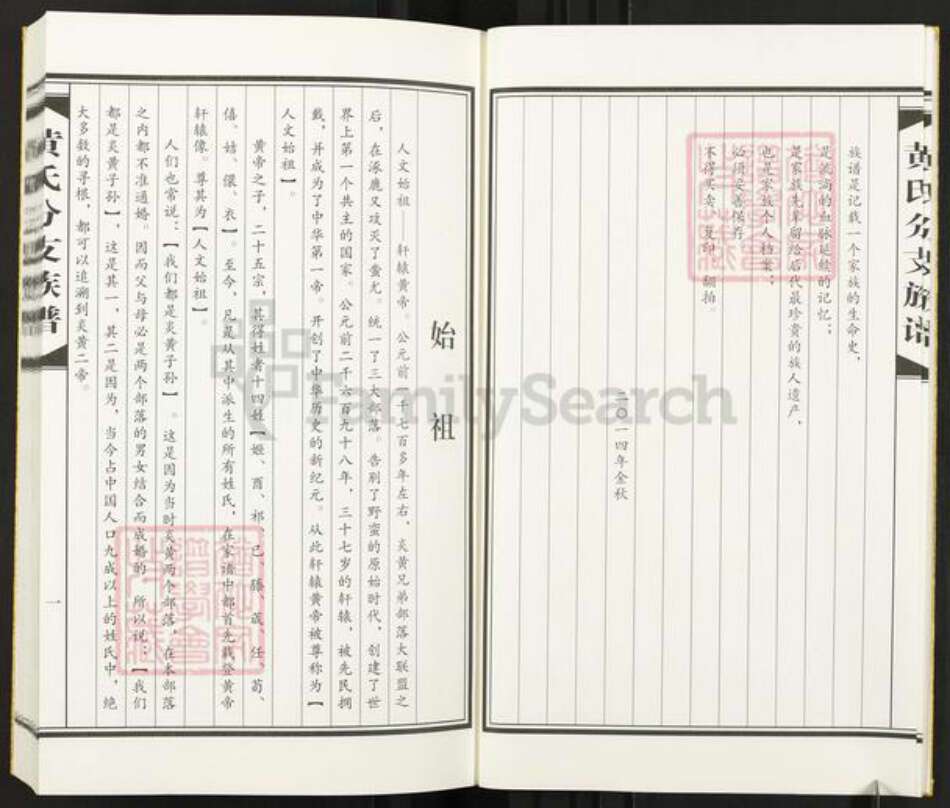 黄氏分支族谱
族谱是记载一个家族的生命史，
是流淌的血脉延续的记忆；
是家族先辈留给后代最珍贵的族人遗产，
也是家族个人档案；
必须妥善保存，
不得买卖、复印、翻拍。
二〇一四年金秋
始祖
人文始祖——轩辕黄帝。公元前二千七百多年左右，炎黄兄弟部落大联盟之
后，在涿鹿又攻灭了蚩尤。统一了三大部落。告别了野蛮的原始时代，创建了世
界上第一个共主的国家。公元前二千六百九十八年，三十七岁的轩辕，被先民拥
戴，并成为了中华第一帝。开创了中华历史的新纪元。从此轩辕黄帝被尊称为【
人文始祖】。
黄帝之子，二十五宗，其得姓者十四姓【姬、酉、祁、己、滕、葴、任、荀、
僖、姞、儇、衣】。至今，凡是从其中派生的所有姓氏，在家谱中都首先载登黄帝
轩辕像。尊其为【人文始祖】。
人们也常说：【我们都是炎黄子孙】。这是因为当时炎黄两个部落，在本部落
之内都不准通婚。因而父与母必是两个部落的男女结合而成婚的。所以说：【我们
都是炎黄子孙】，这是其一，其二是因为，当今占中国人口九成以上的姓氏中，绝
大多数的寻根，都可以追溯到炎黄二帝。
黄氏分支族谱
一
FamilySearch